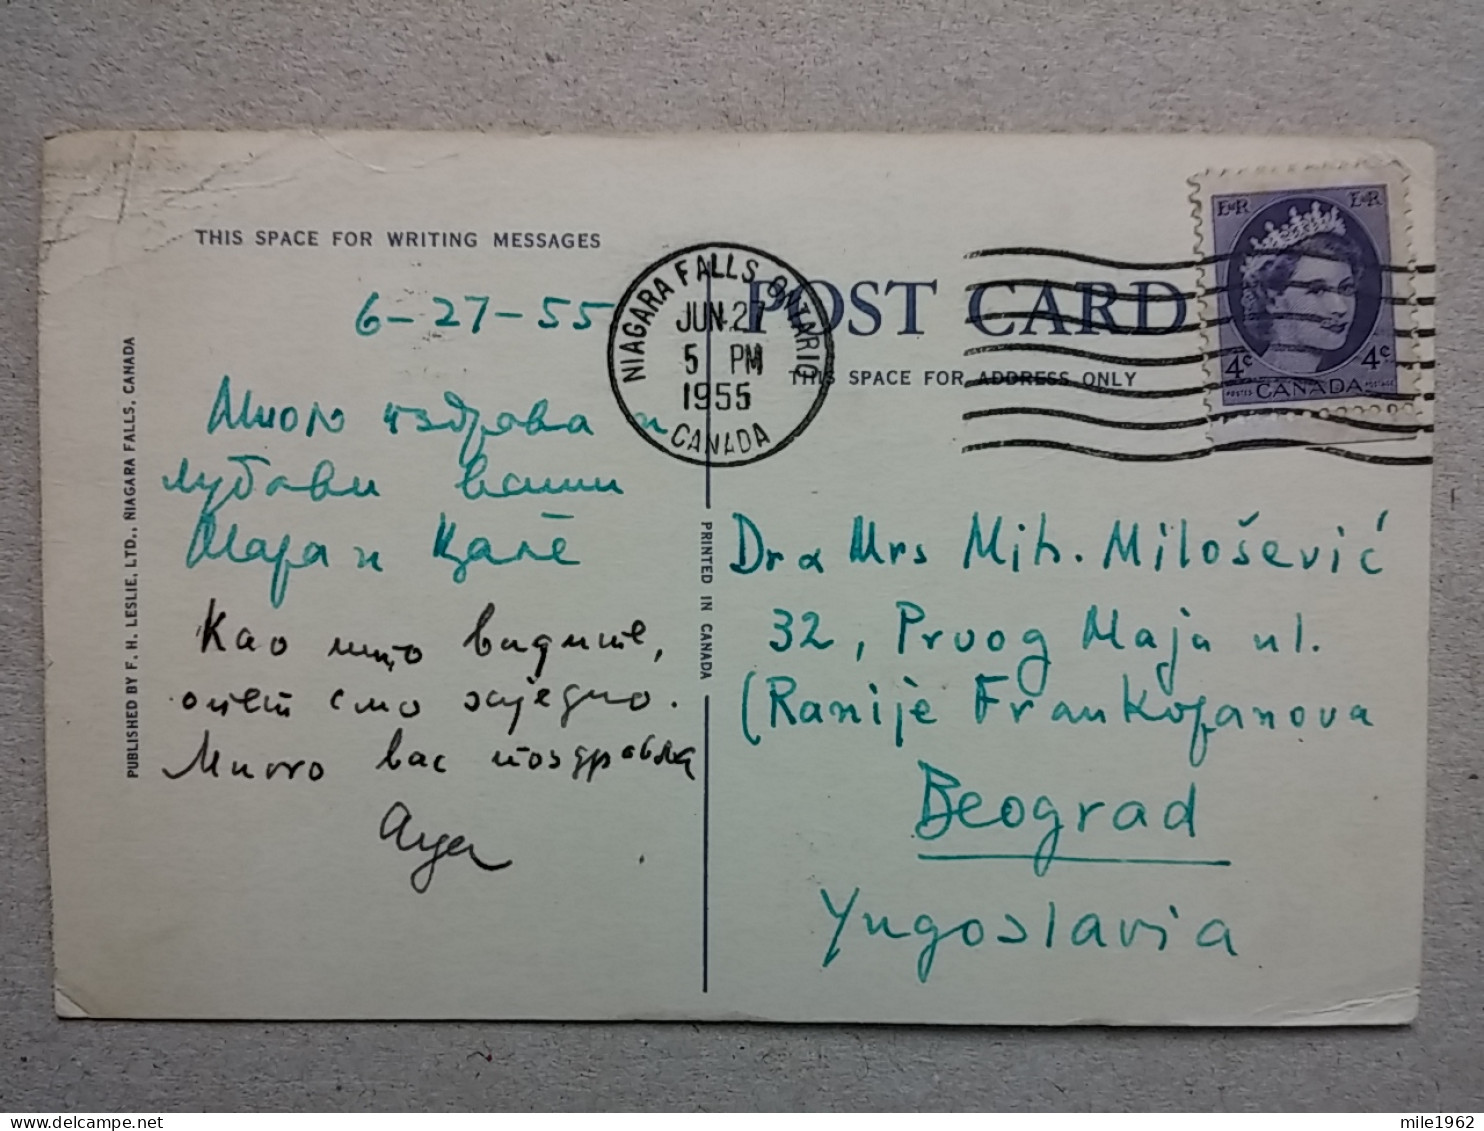 THIS SPACE FOR WRITING MESSAGES
6-27-55
Много поздрава и
љубави вашим
Мара и
Као што видите,
опет смо заједно.
Много вас поздравља
PUBLISHED BY F. H. LESLIE, LTD., NIAGARA FALLS, CANADA
PRINTED IN CANADA
NIAGARA FALLS, ONTARIO
JUN 27
5 PM
1955
CANADA
POST CARD
THIS SPACE FOR ADDRESS ONLY
EIIR EIIR
4c 4c
POSTES CANADA POSTAGE
Dr & Mrs Mih. Milošević
32, Prvog Maja ul.
(Ranije Frankopanova
Beograd
Yugoslavia
mile1962